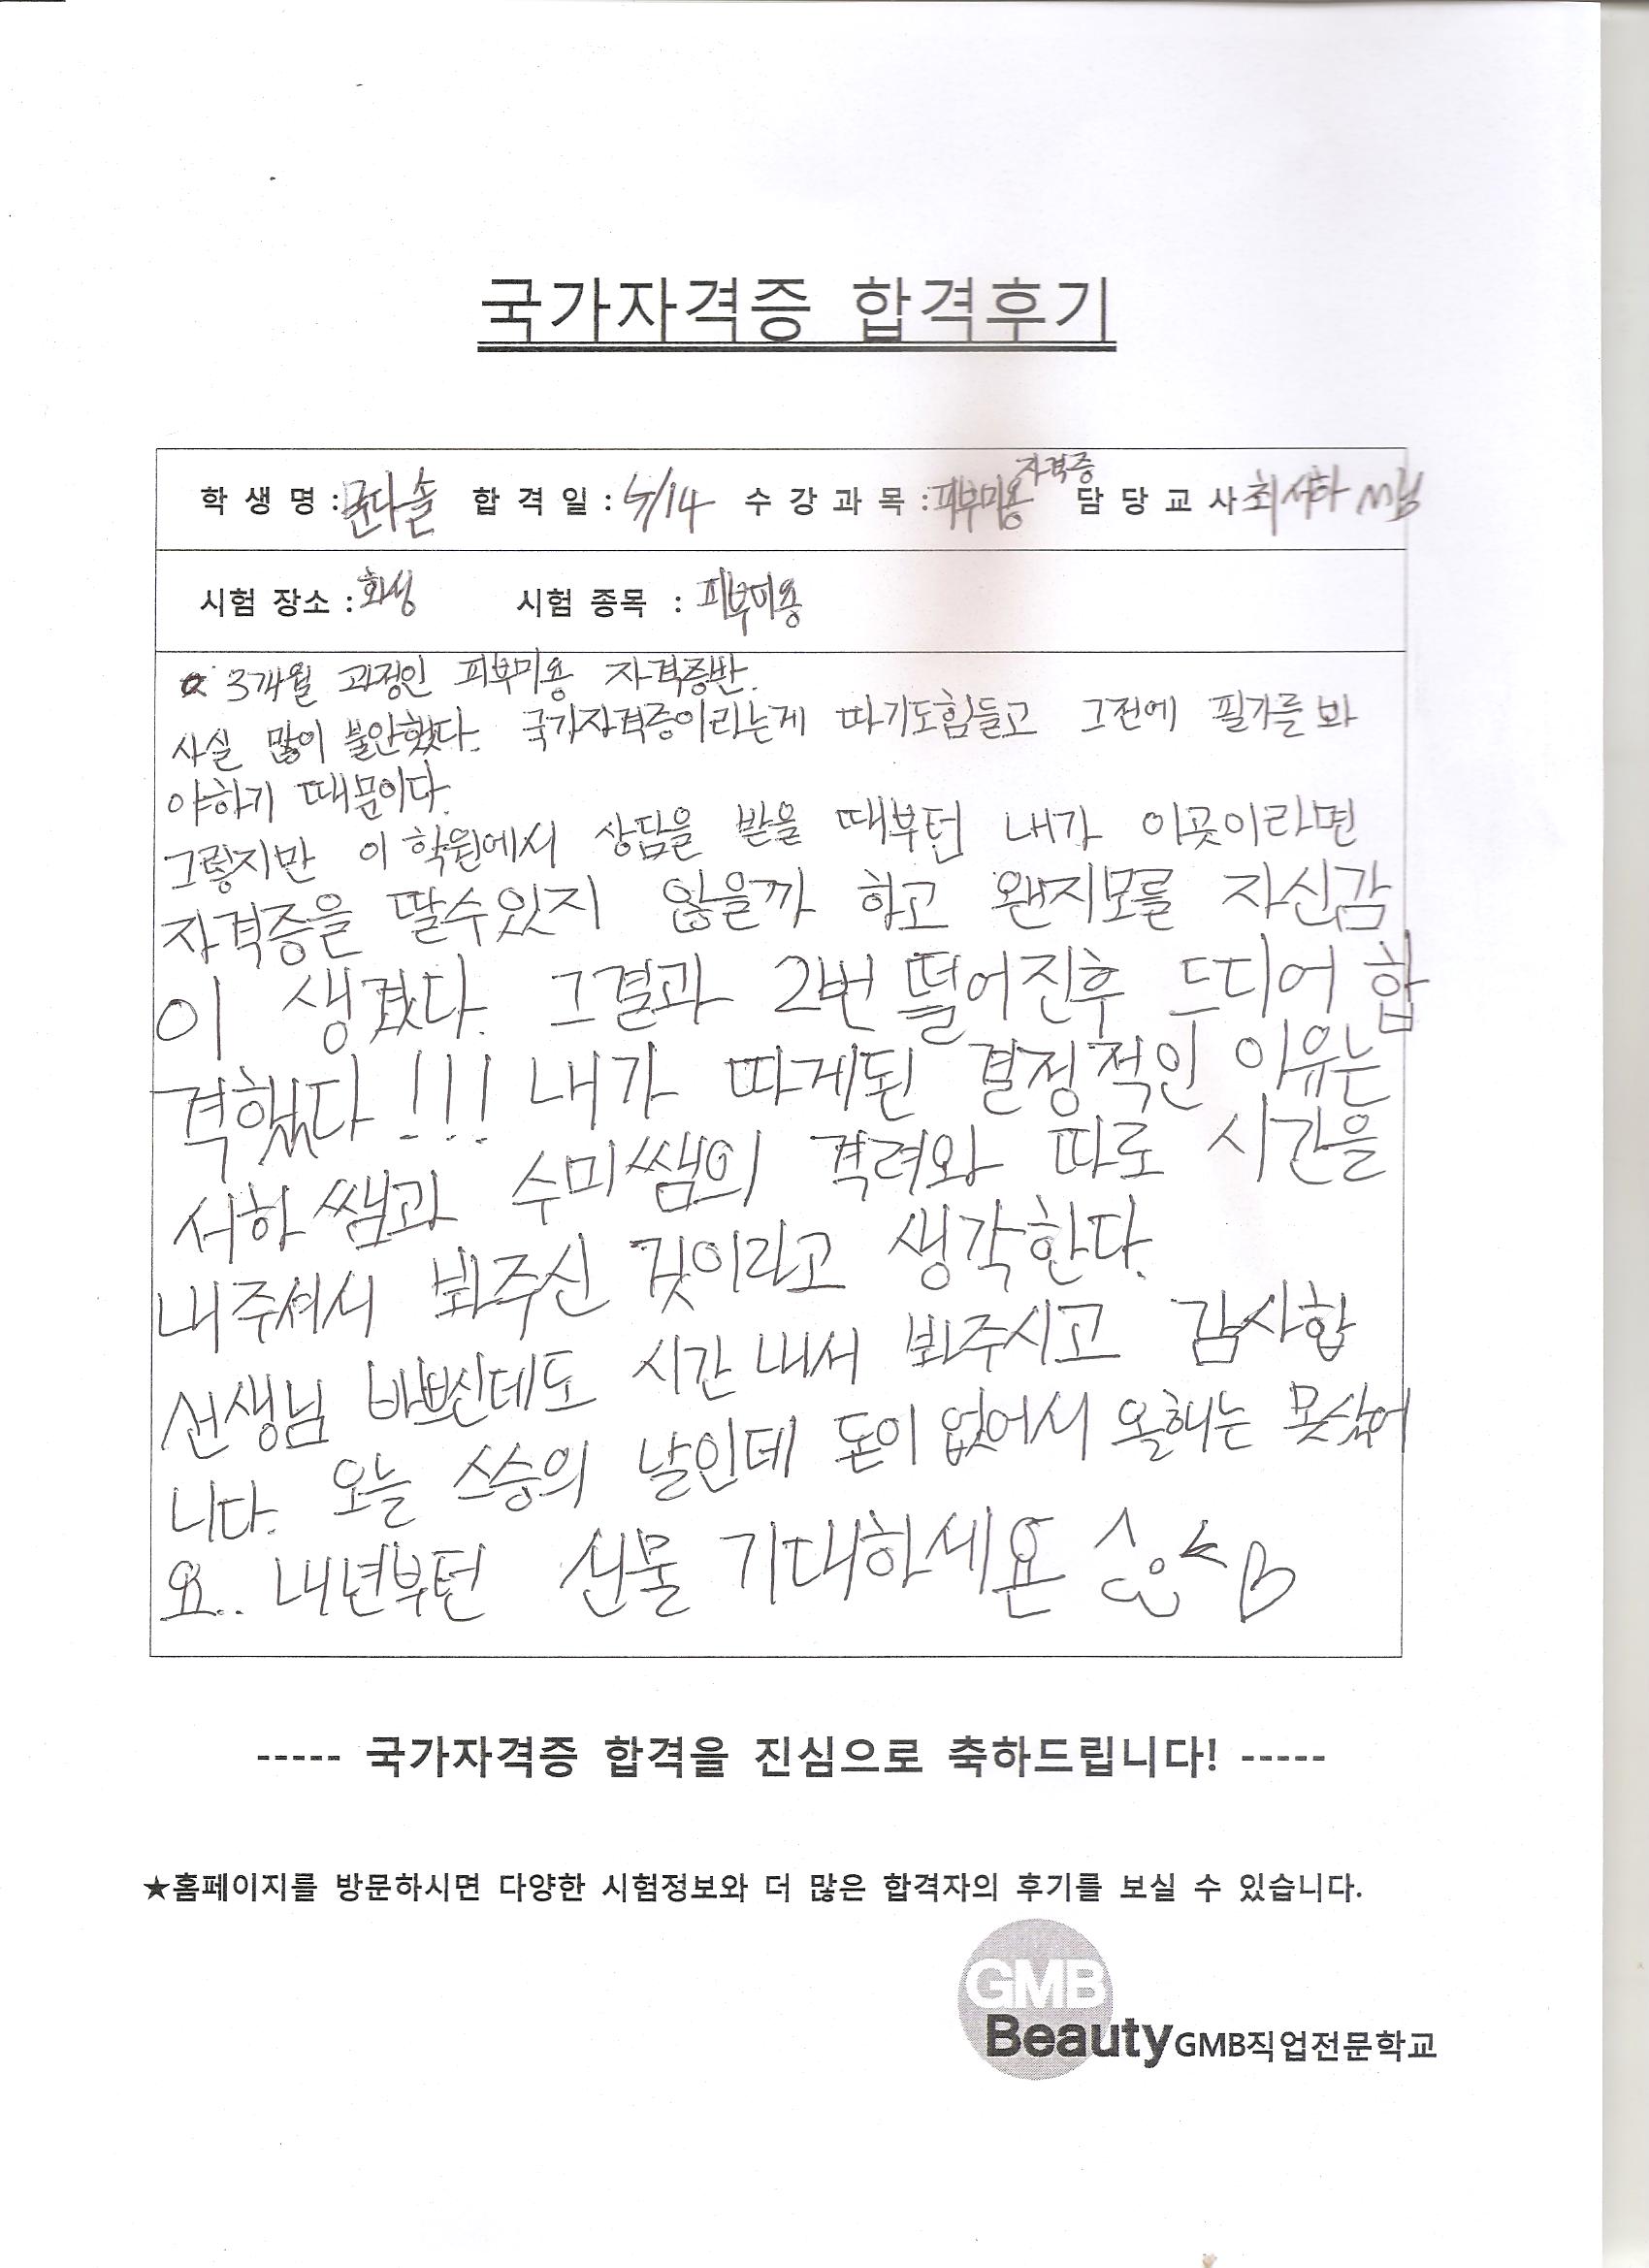 국가자격증 합격후기
학 생 명 : 다솔 합 격 일 : 5/14 수 강 과 목 : 피부미용 자격증 담 당 교 사 최서하
시험 장소 : 화성 시험 종목 : 피부미용
☆ 3개월 과정인 피부미용 자격증반.
사실 많이 불안했다. 국가자격증이라는게 따기도힘들고 그전에 필기를 봐
야하기 때문이다.
그렇지만 이 학원에서 상담을 받을 때부턴 내가 이곳이라면
자격증을 딸수있지 않을까 하고 왠지모를 자신감
이 생겼다. 그결과 2번 떨어진후 드디어 합
격했다!!! 내가 따게된 결정적인 이유는
서하쌤과 수미쌤의 격려와 따로 시간을
내주셔서 봐주신 것이라고 생각한다.
선생님 바쁘신데도 시간 내서 봐주시고 감사합
니다. 오늘 스승의 날인데 돈이 없어서 올해는 못샀어
요.. 내년부턴 선물 기대하세요
----- 국가자격증 합격을 진심으로 축하드립니다! -----
★홈페이지를 방문하시면 다양한 시험정보와 더 많은 합격자의 후기를 보실 수 있습니다.
GMB
Beauty GMB직업전문학교